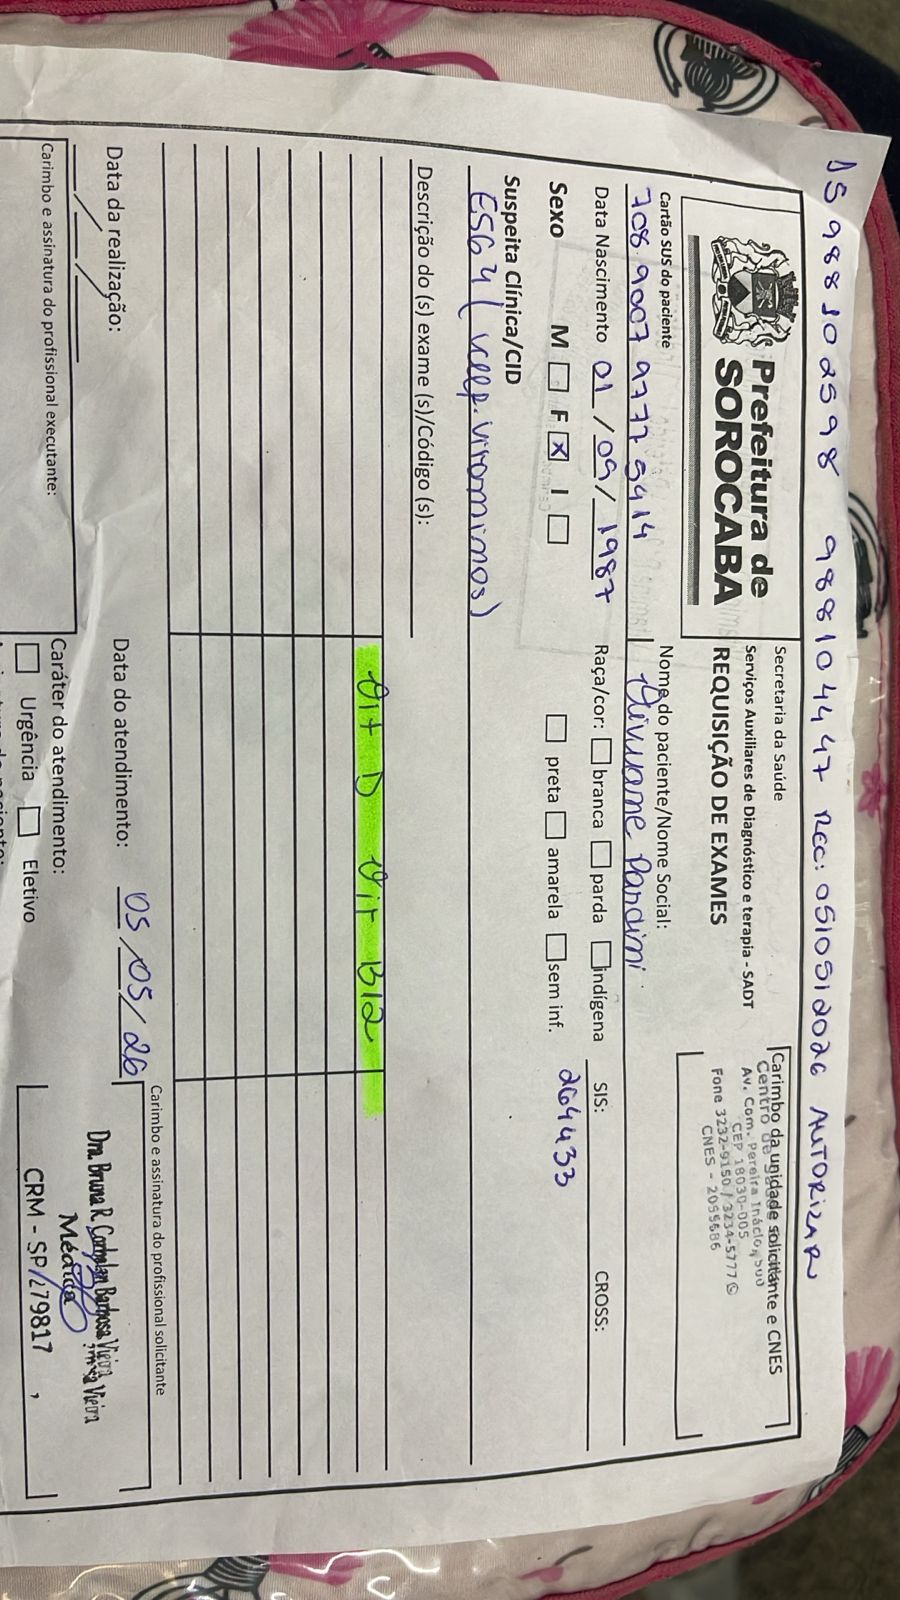 15 988102598 988104447 REC: 05/05/2026 AUTORIZAR
Prefeitura de
SOROCABA
Secretaria da Saúde
Serviços Auxiliares de Diagnóstico e terapia - SADT
REQUISIÇÃO DE EXAMES
Carimbo da unidade solicitante e CNES
Centro de
Av. Com. Pereira Inácio, 500
CEP 18030-005
Fone 3232-9150 / 3234-5777
CNES - 2055686
Cartão SUS do paciente
708 9007 9777 5414
Nome do paciente/Nome Social:
Pandimi
Data Nascimento 01/09/1987
Raça/cor: branca parda indígena
SIS:
CROSS:
Sexo M F X I
preta amarela sem inf.
264433
Suspeita Clínica/CID
E564
Descrição do (s) exame (s)/Código (s):
Vit D Vit B12
Data da realização:
__/__/__
Data do atendimento:
05/05/26
Carimbo e assinatura do profissional solicitante
Dra. Bruna R. Barbosa Vieira
Médica
CRM - SP/279817
Carimbo e assinatura do profissional executante:
Caráter do atendimento:
Urgência Eletivo